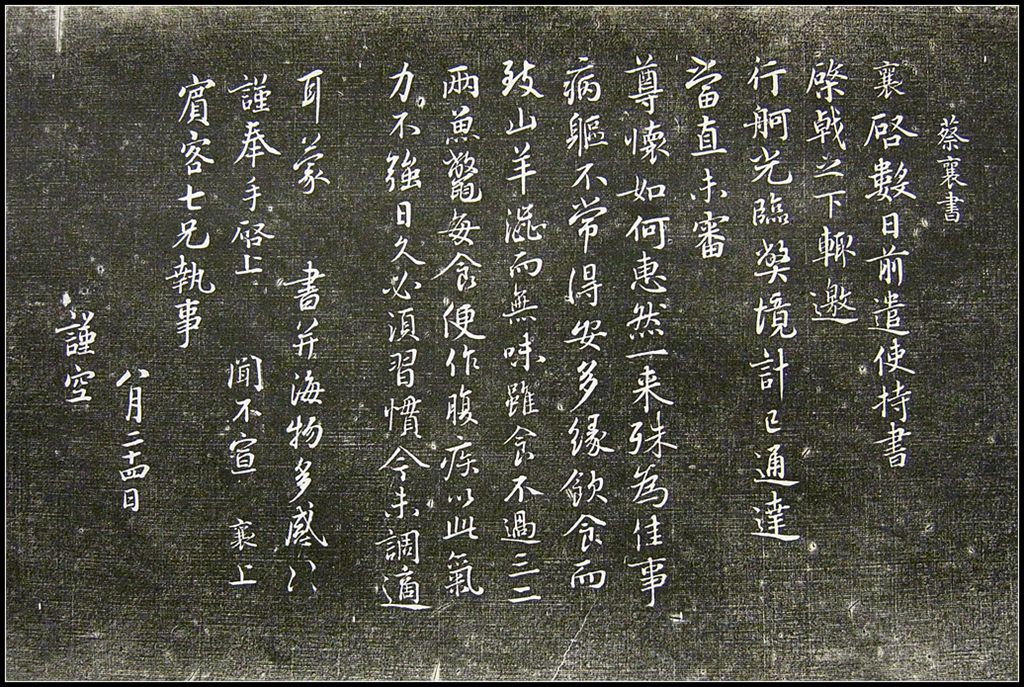 蔡襄書
襄啓數日前遣使持書
棨戟之下輒邀
行舸光臨獘境計已通達
當直未審
尊懷如何惠然一来殊為佳事
病軀不常得安多緣飲食而
致山羊澁而無味雖食不過三二
兩魚鱉每食便作腹疾以此氣
力不強日久必湏習慣今未調適
耳蒙 書并海物多感〻
謹奉手啓上 聞不宣 襄上
賔客七兄執事
八月二十四日
謹空